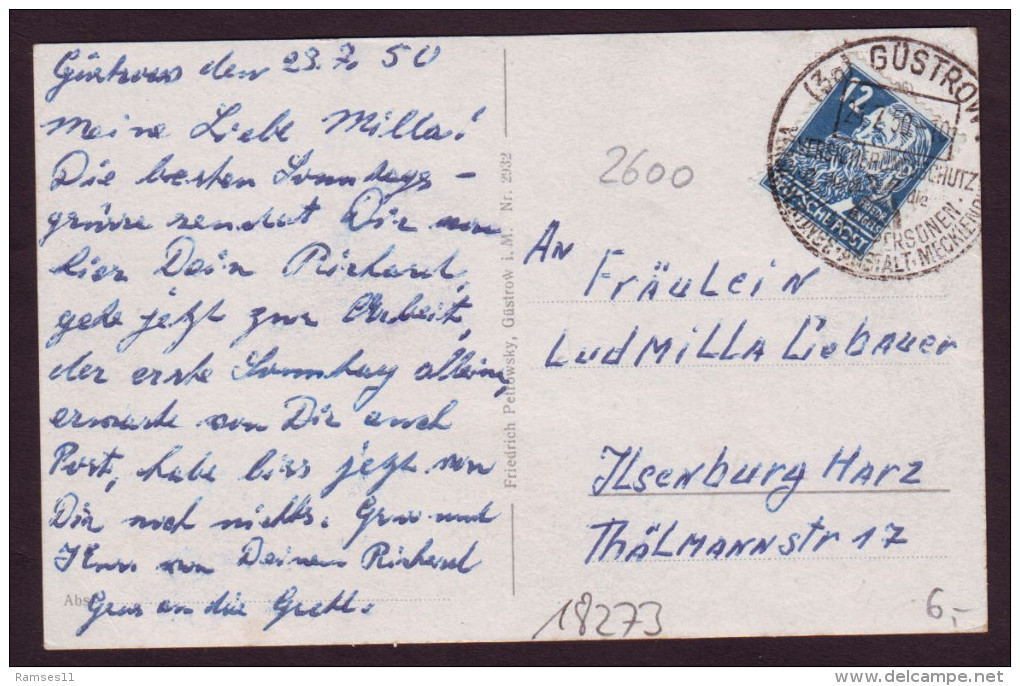 Güstrow den 23.7.50
Meine Liebe Milla!
Die besten Sonntags-
grüsse sendet Dir von
hier Dein Richard,
gehe jetzt zur Arbeit,
der erste Sonntag allein,
erwarte von Dir auch
Post, habe biss jetzt von
Dir noch nichts. Gruss und
Kuss von Deinen Richard
Abs.
Gruss an die Gretl.
Friedrich Petrowsky, Güstrow i. M. Nr. 2932
GÜSTROW
12
DEUTSCHE POST
2600
An
Fräulein
Ludmilla Liebauer
Ilsenburg Harz
Thälmannstr 17
18273
6,-
Ramses11
delcampe.net